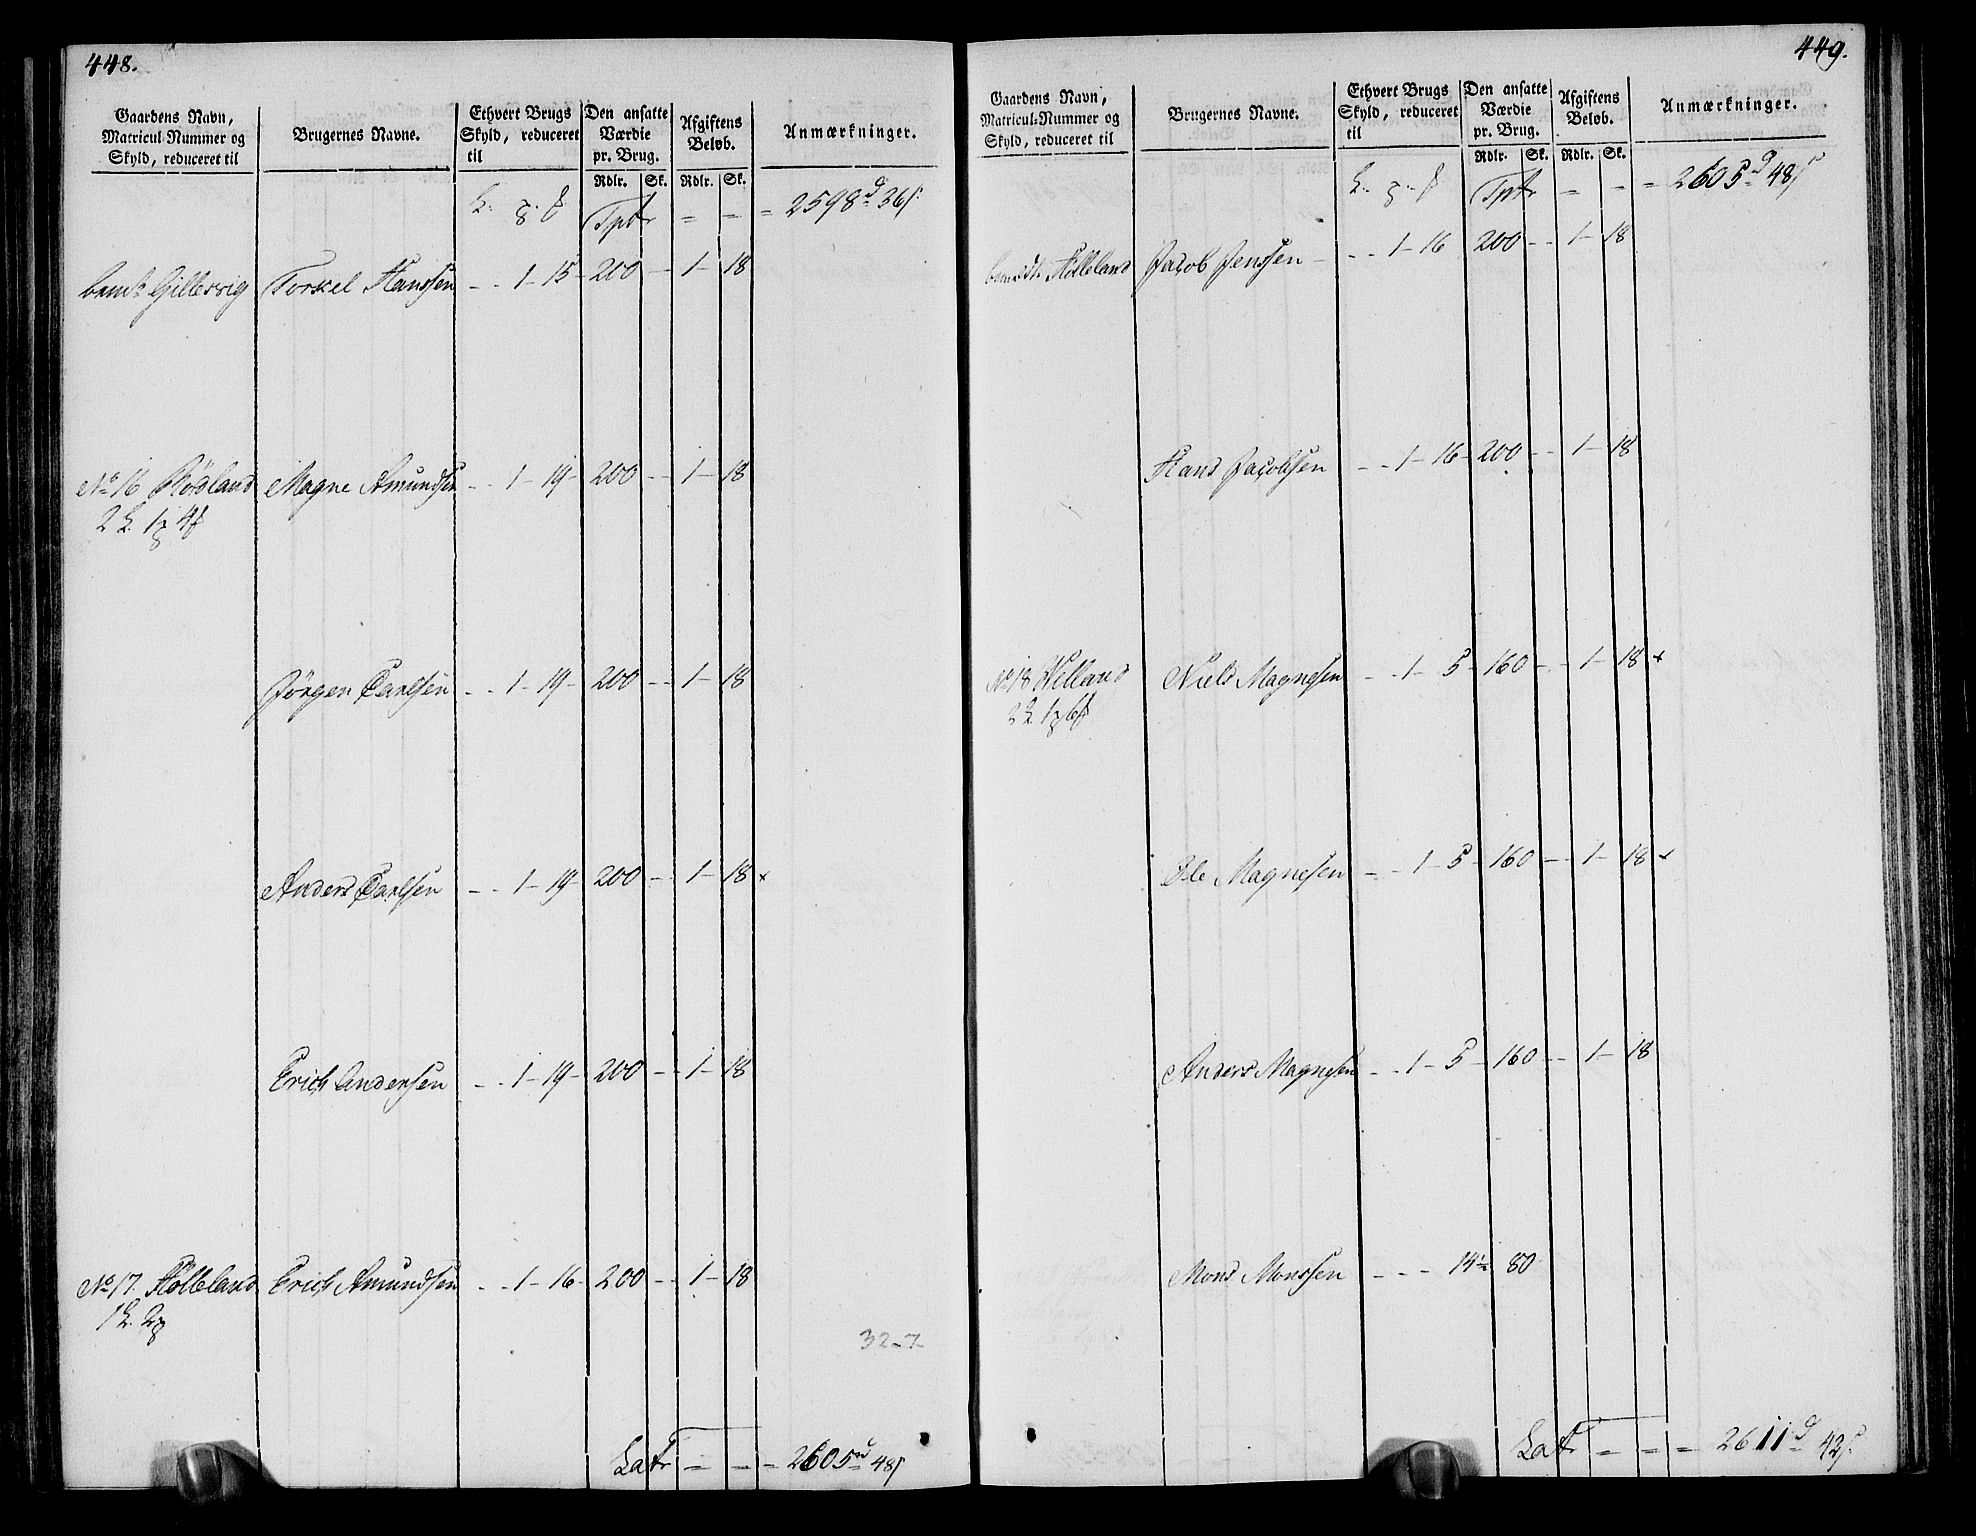 448.
Gaardens Navn, Matricul-Nummer og Skyld, reduceret til | Brugernes Navne. | Ethvert Brugs Skyld, reduceret til | Den ansatte Værdie pr. Brug. Rdlr. Sk. | Afgiftens Beløb. Rdlr. Sk. | Anmærkninger.
Tptr = = = 2598 d 36 s
bemte Gillesvig Torkel Hanssen - - 1 - 15 - 200 - - 1 - 18
No 16 Rödland Magne Amundsen - - 1 - 19 - 200 - - 1 - 18
2 L. 1 p 4 f
Jörgen Carlsen - - 1 - 19 - 200 - - 1 - 18
Anders Carlsen - - 1 - 19 - 200 - - 1 - 18 x
Erich Andersen - - 1 - 19 - 200 - - 1 - 18
No 17. Hölleland Erich Amundsen - - 1 - 16 - 200 - - 1 - 18
1 L. 2 p
32-7
Latr = = = 2605 d 48 s
449.
Gaardens Navn, Matricul-Nummer og Skyld, reduceret til | Brugernes Navne. | Ethvert Brugs Skyld, reduceret til | Den ansatte Værdie pr. Brug. Rdlr. Sk. | Afgiftens Beløb. Rdlr. Sk. | Anmærkninger.
Tptr = = = 2605 d 48 s
bemeldte Hölleland Jacob Jenssen - - - 1 - 16 200 - - 1 - 18
Hans Jacobsen - - 1 - 16 - 200 - - 1 - 18
No 18 Helland Niels Magnesen - - 1 - 5 - 160 - - 1 - 18 x
2 L. 1 p 6 f
Ole Magnesen - - 1 - 5 - 160 - - 1 - 18 x
Anders Magnesen - - 1 - 5 - 160 - - 1 - 18
Mons Monssen - - - 14½ 80
Latr = = = 2611 d 42 s